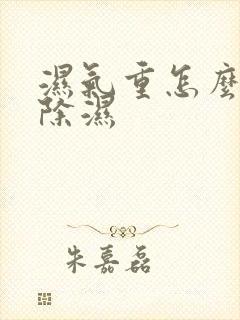 濕氣重怎麼
除濕
朱嘉磊